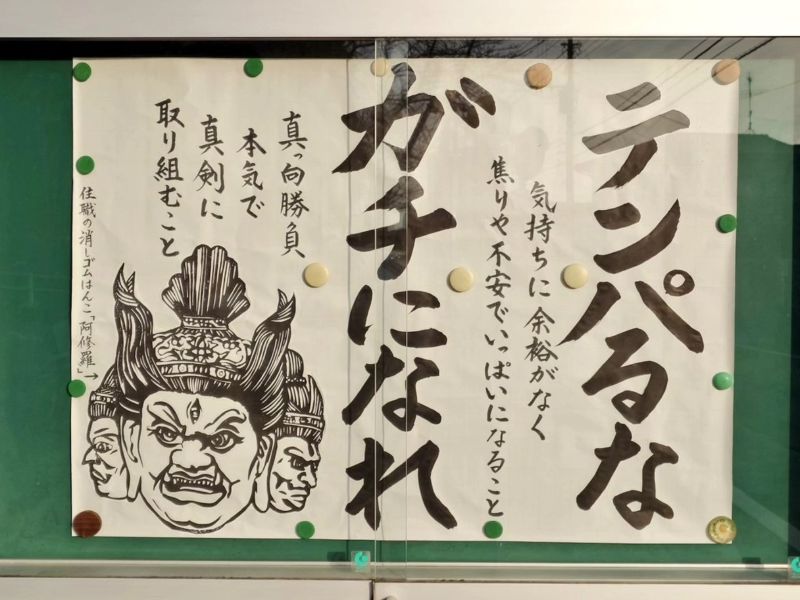 テンパるな
気持ちに余裕がなく
焦りや不安でいっぱいになること
ガチになれ
真っ向勝負
本気で
真剣に
取り組むこと
住職の消しゴムはんこ「阿修羅」→